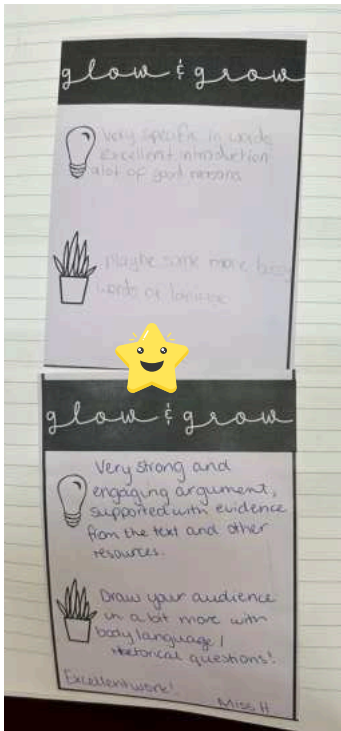 glow & grow
Very specific in words
Excellent introduction
alot of good reasons
Maybe some more
words or
glow & grow
Very strong and
engaging argument,
supported with evidence
from the text and other
resources.
Draw your audience
in a bit more with
body language/
rhetorical questions!
Excellent work!
Miss H